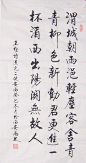 渭城朝雨浥輕塵客舍青
青柳色新勸君更盡一
杯酒西出陽關無故人
王維詩